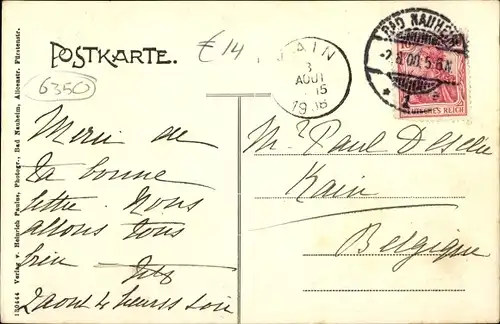 POSTKARTE.
€14
6350
KAIN
3
AOUT
15
1908
BAD NAUHEIM
-2.8.08.5-6.N.
* 1 *
10
DEUTSCHES REICH
130444 Verlag v. Heinrich Paulus, Photogr., Bad Nauheim, Alicenstr. Fürstenstr.
Merci de
ta bonne
lettre. Nous
allons tous
bien
2 aout 4 heures soir
Mr Paul
Kain
Belgique